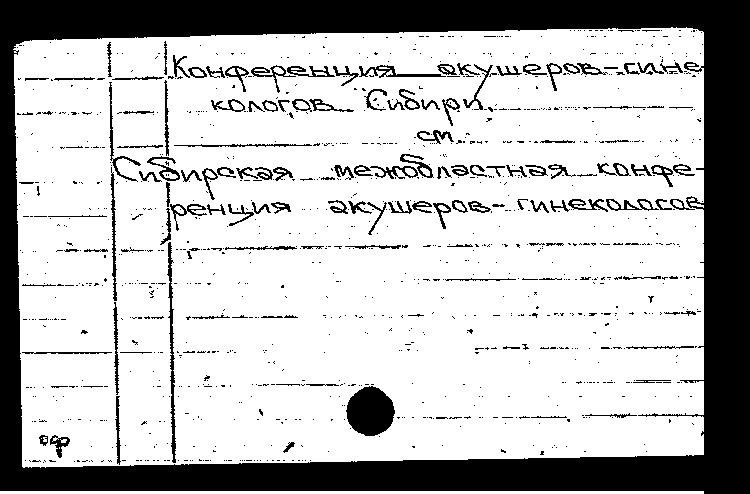 Конференция акушеров-гине-
кологов Сибири.
см.
Сибирская межобластная конфе-
ренция акушеров-гинекологов